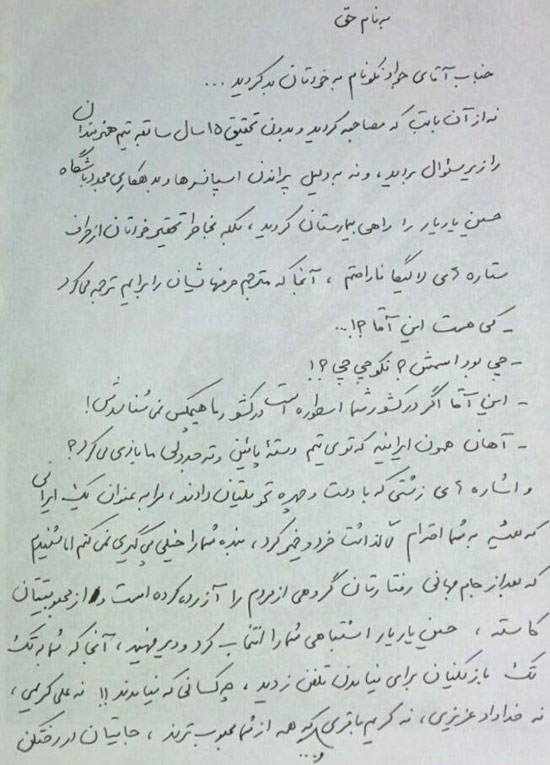 به نام حق
جناب آقای جواد نکونام به خودتان بد کردید ...
نه از آن بابت که مصاحبه کردید و بدون تحقیق ۱۵ سال سابقه تیم هنرمندان
را زیر سئوال بردید، و نه به دلیل پراندن اسپانسرها و بدهکاری مجدد باشگاه
حسین یاریار را راهی بیمارستان کردید، بلکه بخاطر تحقیر خودتان از طرف
ستاره های لالیگا ناراحتم، آنجا که مترجم حرفهاشان را برایم ترجمه می کرد
- کی هست این آقا؟!...
- چی بود اسمش؟ نکو چی چی؟!
- این آقا اگر در کشور شما اسطوره است در کشور ما هیچکس نمی شناسدش!
- آهان همون ایرانیه که توی تیم دستهٔ پائینی و ته جدولی ما بازی می کرد؟
و اشاره های زشتی که با دست و چهره تحویلتان دادند، مرا به عنوان یک ایرانی
که همیشه به شما احترام گذاشت خرد و خمیر کرد، بنده شما را خیلی پی گیری نمی کنم اما شنیدم
که بعد از جام جهانی رفتارتان گروهی از مردم را آزرده کرده است و از محبوبیتتان
کاسته، حسین یاریار اشتباهی شما را انتخاب کرد و دیر فهمید، آنجا که شما به تک
تک بازیکنان برای نیامدن تلفن زدید، چه کسانی که نیامدند!! نه علی کریمی،
نه خداداد عزیزی، نه کریم باقری و... که همه از شما محبوب ترند، جایتان در رختکن